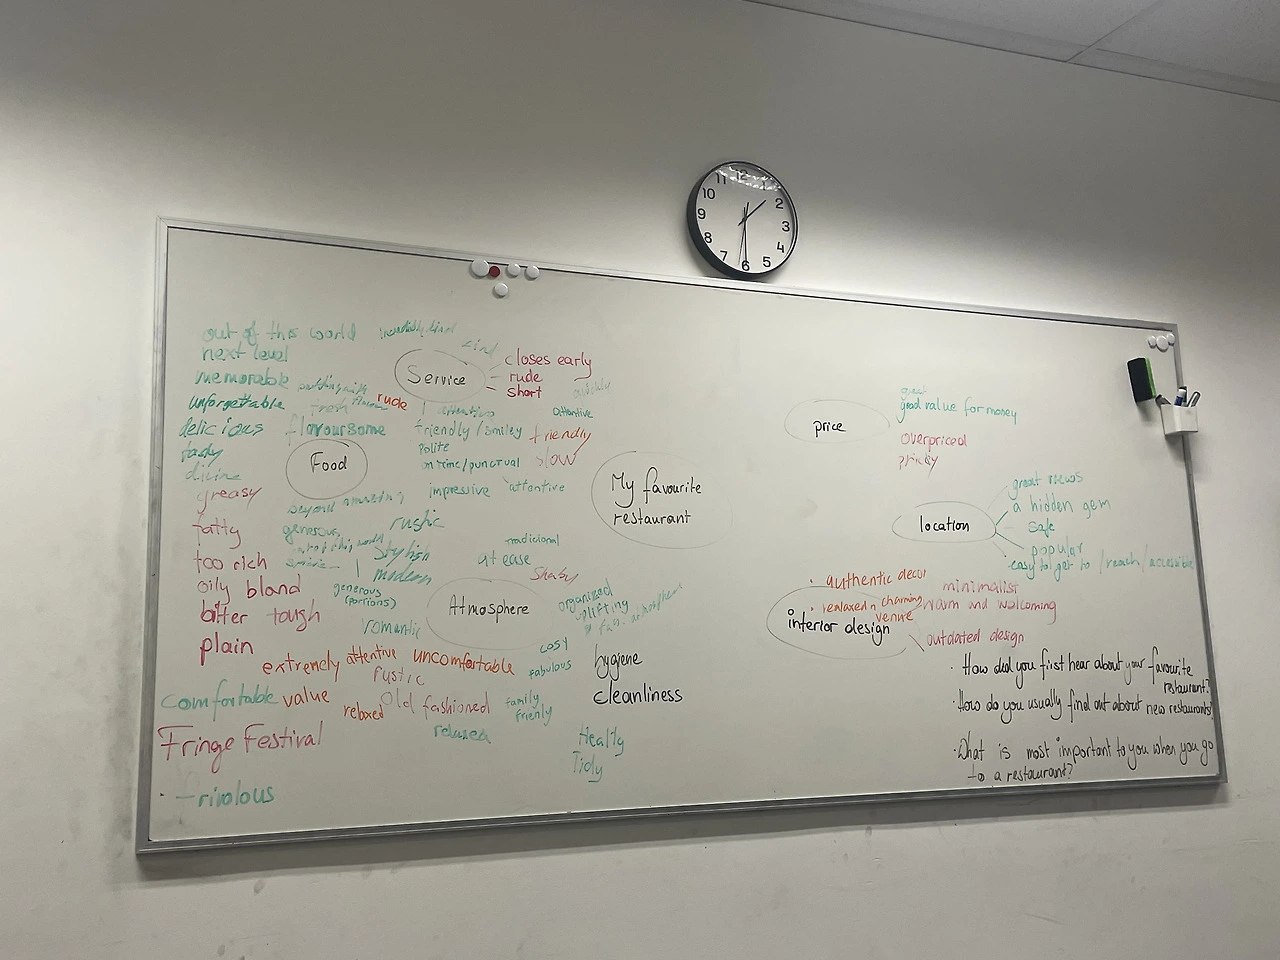 11 12 1
10 2
9 3
8 4
7 6 5
out of this world
next level
memorable
unforgettable
delicious
tasty
divine
greasy
fatty
too rich
oily bland
bitter tough
plain
fresh
flavoursome
Food
generous
generous
(portions)
incredibly kind
kind
Service
closes early
rude
short
quickly
rude
attentive
attentive
friendly/smiley
friendly
polite
on time/punctual
slow
impressive
attentive
rustic
stylish
modern
at ease
shaby
Atmosphere
organized
uplifting
romantic
cosy
fabulous
extremely attentive
uncomfortable
rustic
comfortable
value
relaxed
old fashioned
family
frienly
relaxed
Fringe Festival
frivolous
hygiene
cleanliness
Healty
Tidy
My favourite
restaurant
price
great
good value for money
overpriced
pricey
location
great views
a hidden gem
safe
popular
easy to get to / reach / accessible
interior design
authentic decor
minimalist
charming
venue
warm and welcoming
outdated design
· How did you first hear about your favourite
restaurant?
· How do you usually find out about new restaurants?
· What is most important to you when you go
to a restaurant?